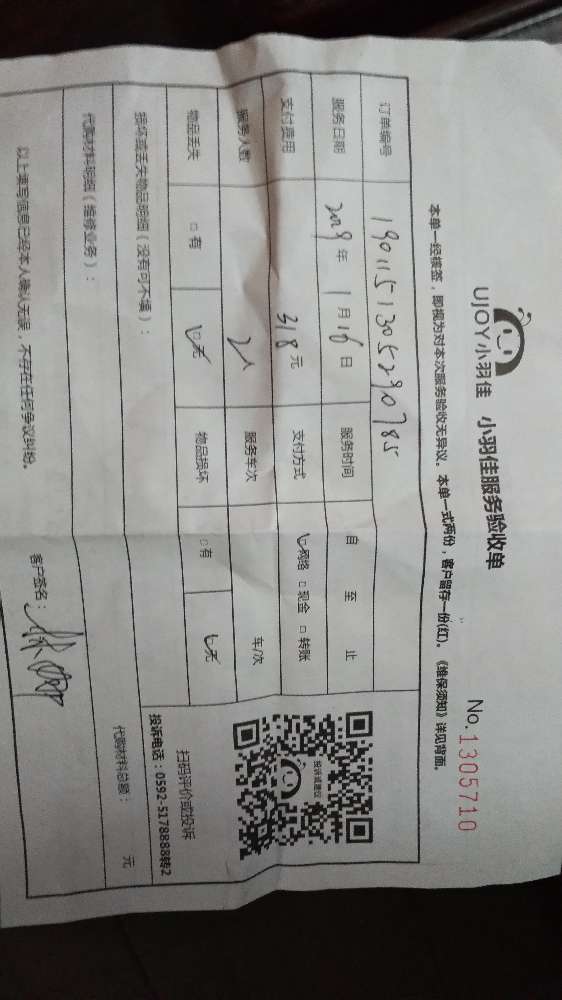 UJOY小羽佳 小羽佳服务验收单
No.1305710
本单一经核签，即视为对本次服务验收无异议。本单一式两份，客户留存一份(红)。《维保须知》详见背面。
订单编号 1901151305290785
服务日期 2019年1月16日 服务时间 自 至 止
支付费用 318元 支付方式 ☑网络 □现金 □转账
服务人数 2人 服务车次 车/次
物品丢失 □有 ☑无 物品损坏 □有 ☑无
损坏或丢失物品明细（没有可不填）：
投诉或建议
扫码评价或投诉
投诉电话：0592-5178888转2
代购材料明细（维修业务）： 代购材料总额： 元
以上填写信息已经本人确认无误，不存在任何争议纠纷。 客户签名：